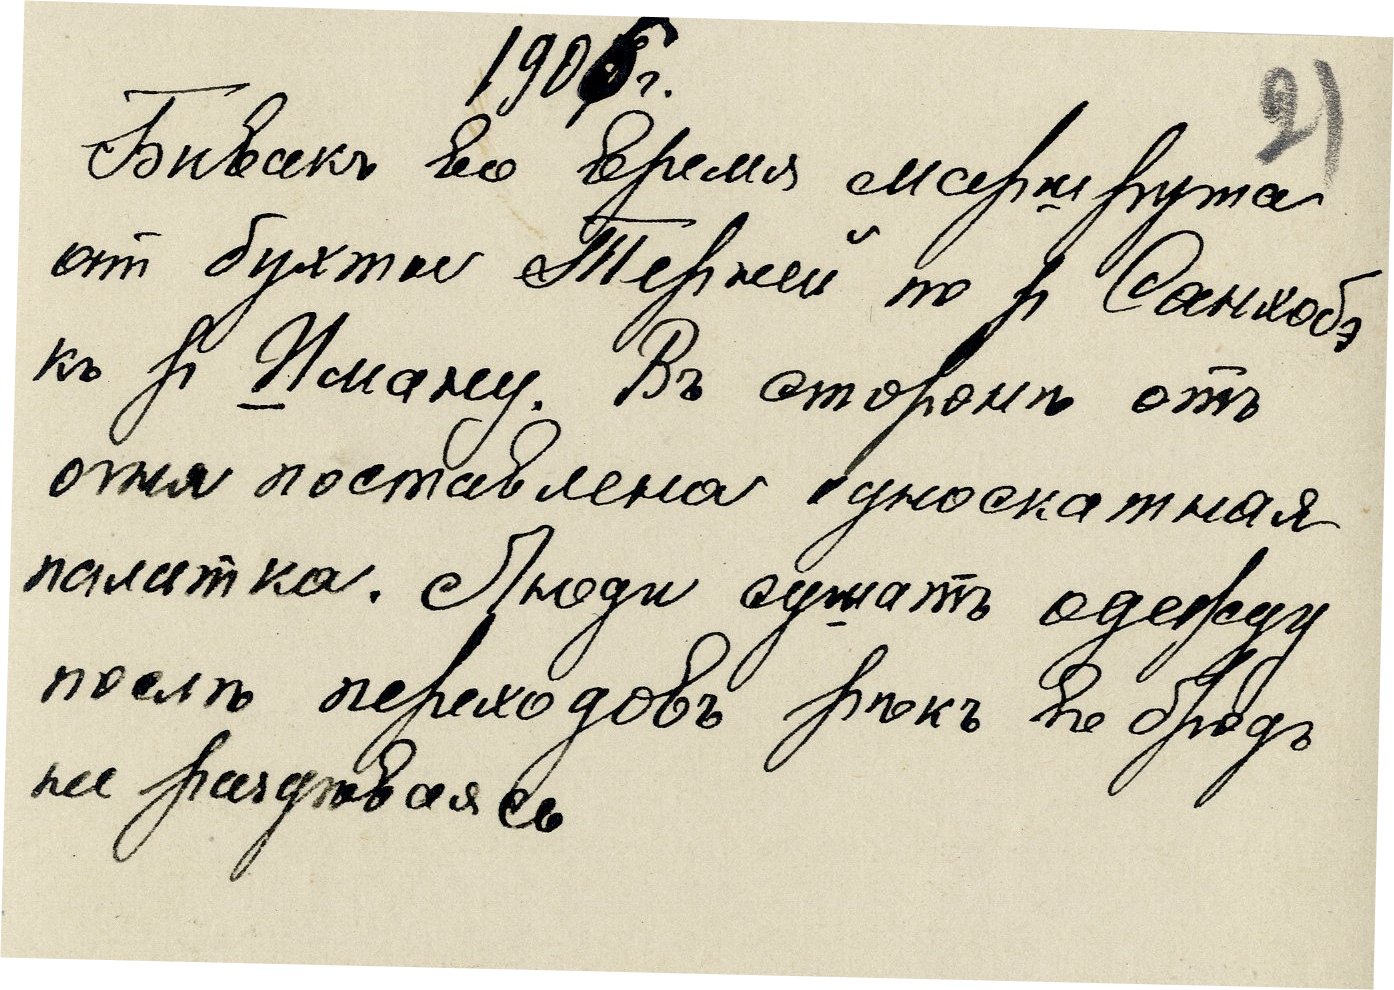 1906 г.
2)
Бивакъ во время маршрута
от бухты Терней по р Санхобэ
къ р Иману. Въ сторонѣ отъ
огня поставлена односкатная
палатка. Люди сушатъ одежду
послѣ переходовъ рѣкъ въ бродъ
не раздѣваясь